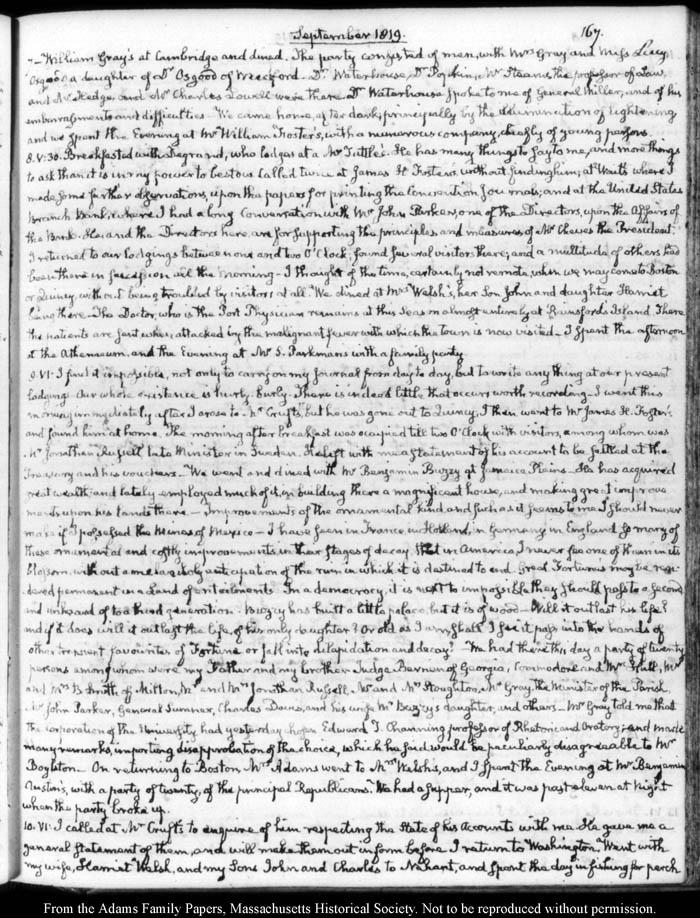 September 1819.
167.
7 — William Gray's at Cambridge and dined. The party consisted of men, with Mrs Gray and Miss Lucy
Osgood a daughter of Dr Osgood of Medford. Dr Waterhouse, Dr Popkin, Mr Stearns, the professor of Law,
and Mr Hedge and Mr Charles Lowell were there. Dr Waterhouse spoke to me of General Miller, and of his
embarrassments and difficulties. We came home, after dark, principally by the illumination of lightening
and we spent the Evening at Mr William Foster's, with a numerous company, chiefly of young persons.
8. V:30. Breakfasted with Degrand, who lodges at a Mr Tuttle's. He has many things to say to me, and more things
to ask than it is in my power to bestow. Called twice at James H. Foster's without finding him; at Wait's where I
made some further observations, upon the papers for printing the Convention Journals; and at the United States
Branch Bank, where I had a long Conversation with Mr John Parker, one of the Directors, upon the Affairs of
the Bank. He and the Directors here, are for supporting the principles and measures of Mr Cheves the President.
I returned to our lodgings between one and two O'Clock; found several visitors there; and a multitude of others had
been there in succession all the morning — I thought of the time, certainly not remote, when we may come to Boston
or Quincy, without being troubled by visitors at all. We dined at Mrs Welsh's, her Son John and daughter Harriet
being there — The Doctor, who is the Port Physician remains at this Season almost entirely at Rainsford's Island. There
the patients are sent when attacked by the malignant fever with which the town is now visited — I spent the afternoon
at the Athenaeum, and the Evening at Mr S. Parkman's with a family party.
9. VI. I find it impossible, not only to carry on my Journal from day to day, but to write any thing at our present
lodgings. Our whole existence is hurly-burly. There is indeed little that occurs worth recording — I went this
morning immediately after I arose to Mr Cruft's, but he was gone out to Quincy; I then went to Mr James H. Foster's
and found him at home. The morning after breakfast was occupied till two O'Clock with visitors, among whom was
Mr Jonathan Russell late Minister in Sweden. He left with me a statement of his account to be settled at the
Treasury and his vouchers. We went and dined with Mr Benjamin Bussy at Jamaica Plains. He has acquired
great wealth and lately employed much of it, in building there a magnificent house, and making great improve
ments upon his lands there — Improvements of the ornamental kind and such as it seems to me I should never
make if I possessed the Mines of Mexico — I have seen in France, in Holland, in Germany in England so many of
these ornamental and costly improvements in their stages of decay, that in America, I never see one of them in its
blossom, without a melancholy anticipation of the ruin in which it is destined to end. Great Fortunes may be ren
dered permanent in a Land of entailments. In a democracy, it is next to impossible they should pass to a second
and unheard of to a third generation. Bussy has built a little palace, but it is of wood — Will it outlast his life?
and if it does will it outlast the life, of his only daughter? Or old as I am, shall I see it pass into the hands of
other transient favourites of Fortune or fall into dilapidation and decay? We had there this day a party of twenty
persons among whom were my Father and my brother Judge Berrien of Georgia, Commodore and Mrs Hull, Mr
and Mrs B. Smith, of Milton, Mr and Mrs Jonathan Russell, Mr and Mrs Stoughton, Mr Gray, the Minister of the Parish,
Mr John Parker, General Sumner, Charles Davis, and his wife Mr Bussy's daughter, and others — Mr Gray told me that
the corporation of the University had yesterday chosen Edward T. Channing professor of Rhetoric and Oratory; and made
many remarks, importing disapprobation of the choice, which he said would be peculiarly disagreeable to Mr
Boylston. On returning to Boston Mrs Adams went to Mrs Welsh's, and I spent the Evening at Mr Benjamin
Austin's, with a party of twenty, of the principal Republicans. We had a supper, and it was past eleven at Night
when the party broke up.
10. VI. I called at Mr Cruft's to enquire of him respecting the State of his Accounts with me. He gave me a
general statement of them, and will make them out in form before I return to Washington. Went with
my wife, Harriet Welsh, and my Sons John and Charles to Nahant, and spent the day in fishing for perch
From the Adams Family Papers, Massachusetts Historical Society. Not to be reproduced without permission.